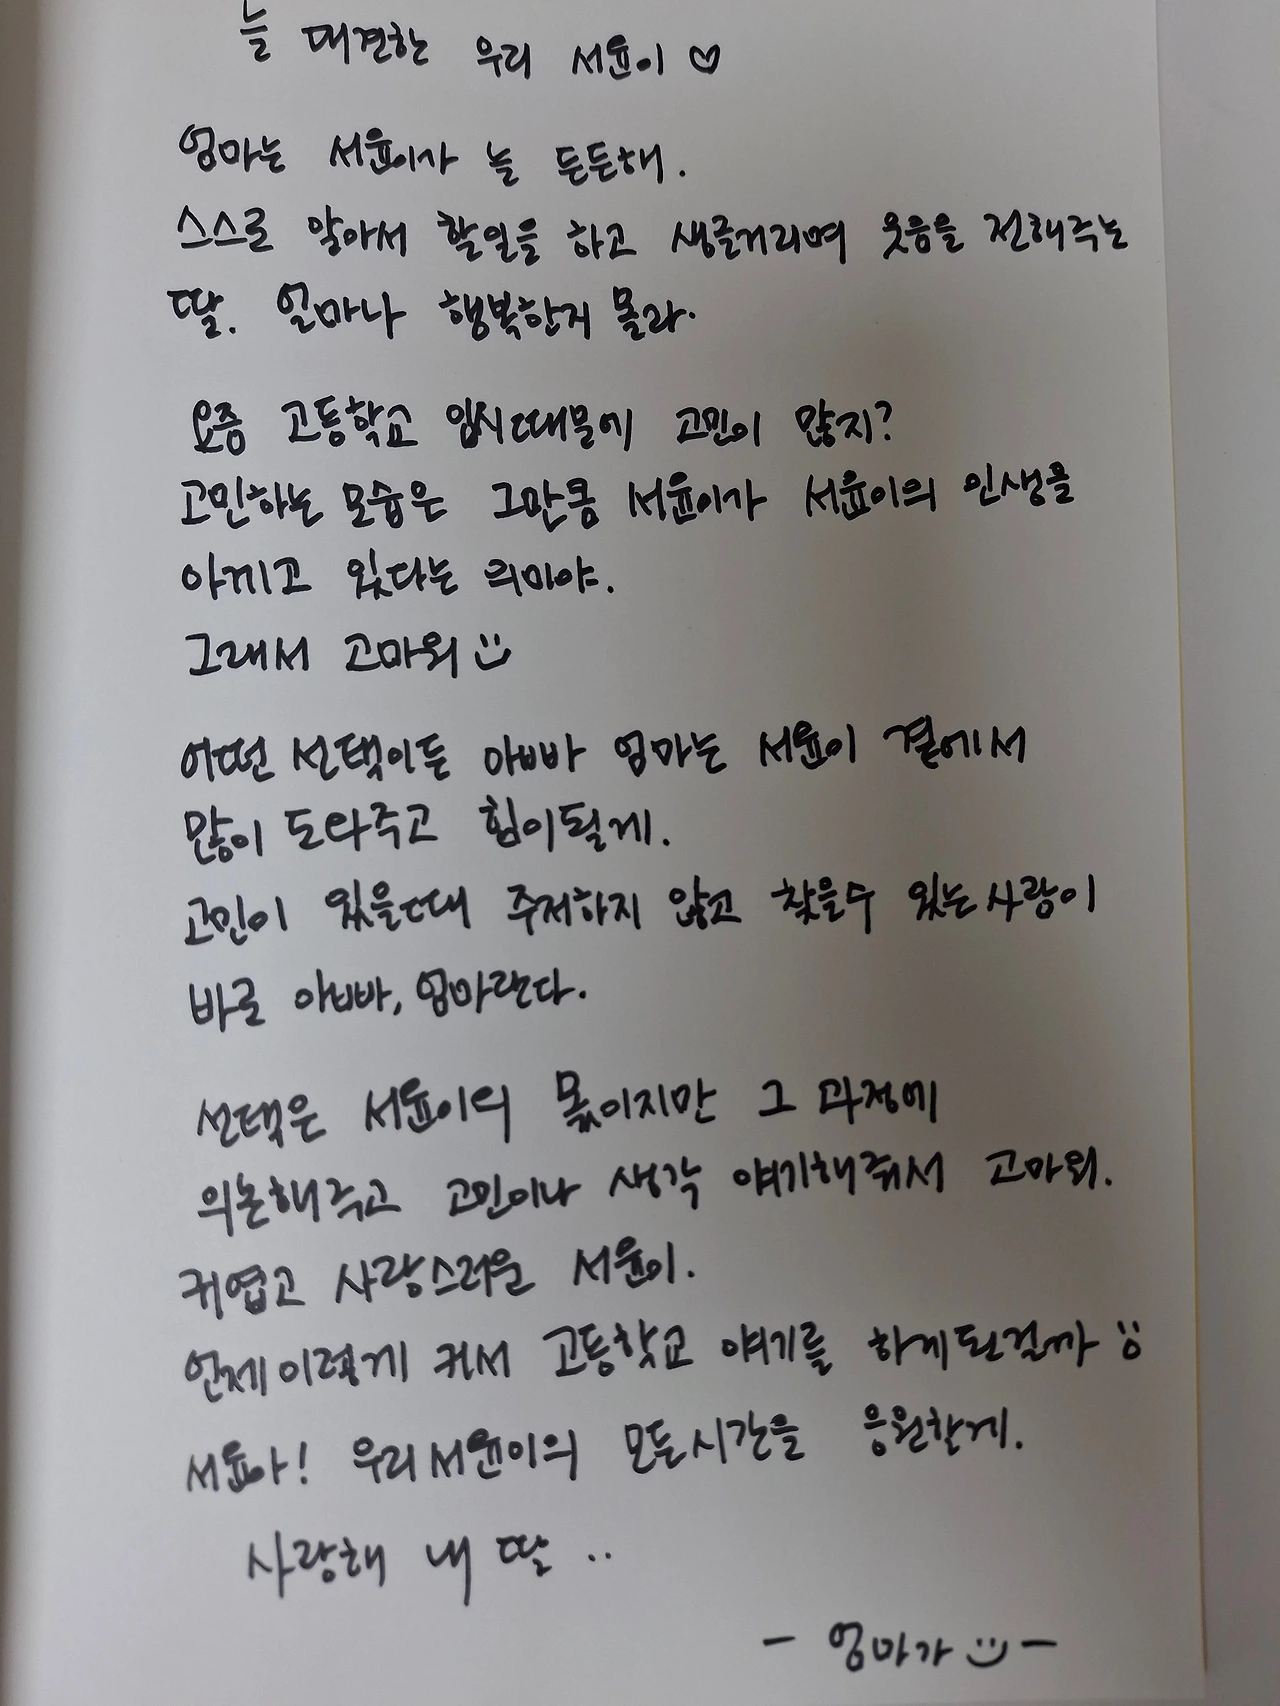 늘 대견한 우리 서윤이♡
엄마는 서윤이가 늘 든든해.
스스로 알아서 할일을 하고 생글거리며 웃음을 전해주는
딸. 얼마나 행복한지 몰라.
요즘 고등학교 입시때문에 고민이 많지?
고민하는 모습은 그만큼 서윤이가 서윤이의 인생을
아끼고 있다는 의미야.
그래서 고마워
어떤 선택이든 아빠 엄마는 서윤이 곁에서
많이 도와주고 힘이될게.
고민이 있을때 주저하지 않고 찾을수 있는 사랑이
바로 아빠, 엄마란다.
선택은 서윤이의 몫이지만 그 과정에
의논해주고 고민이나 생각 얘기해줘서 고마워.
귀엽고 사랑스러운 서윤이.
언제이렇게 커서 고등학교 얘기를 하게된걸까
서윤아! 우리서윤이의 모든시간을 응원할게.
사랑해 내 딸 ..
- 엄마가 -